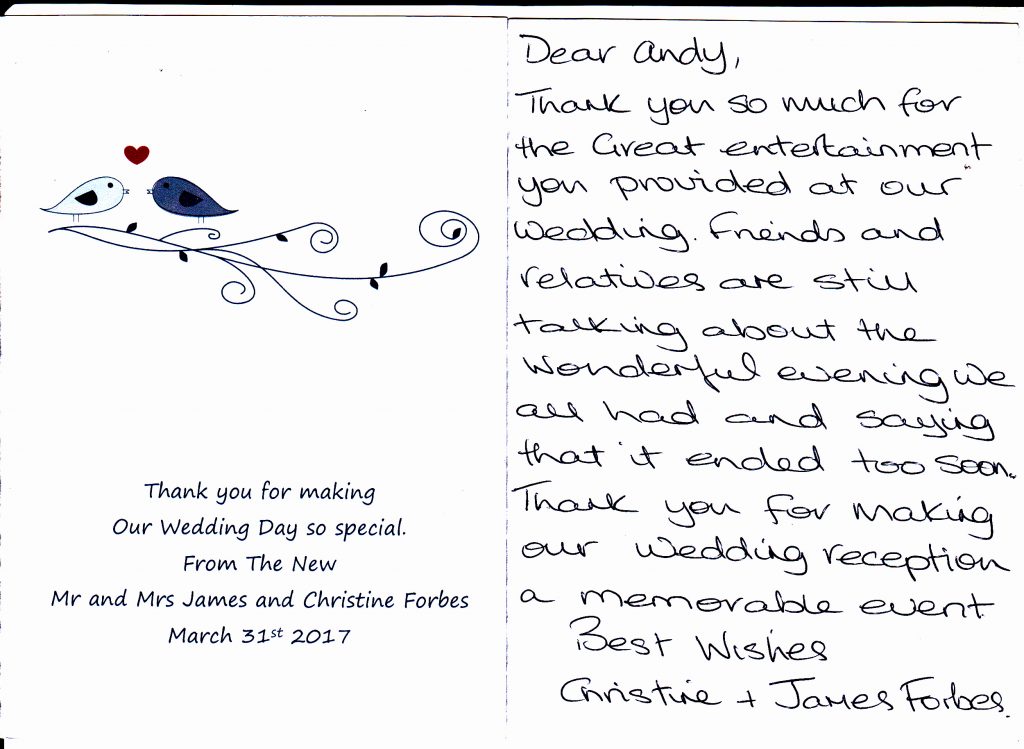 Thank you for making
Our Wedding Day so special.
From The New
Mr and Mrs James and Christine Forbes
March 31st 2017
Dear Andy,
Thank you so much for
the Great entertainment
you provided at our
wedding. Friends and
relatives are still
talking about the
wonderful evening we
all had and saying
that it ended too soon.
Thank you for making
our wedding reception
a memorable event
Best Wishes
Christine + James Forbes.